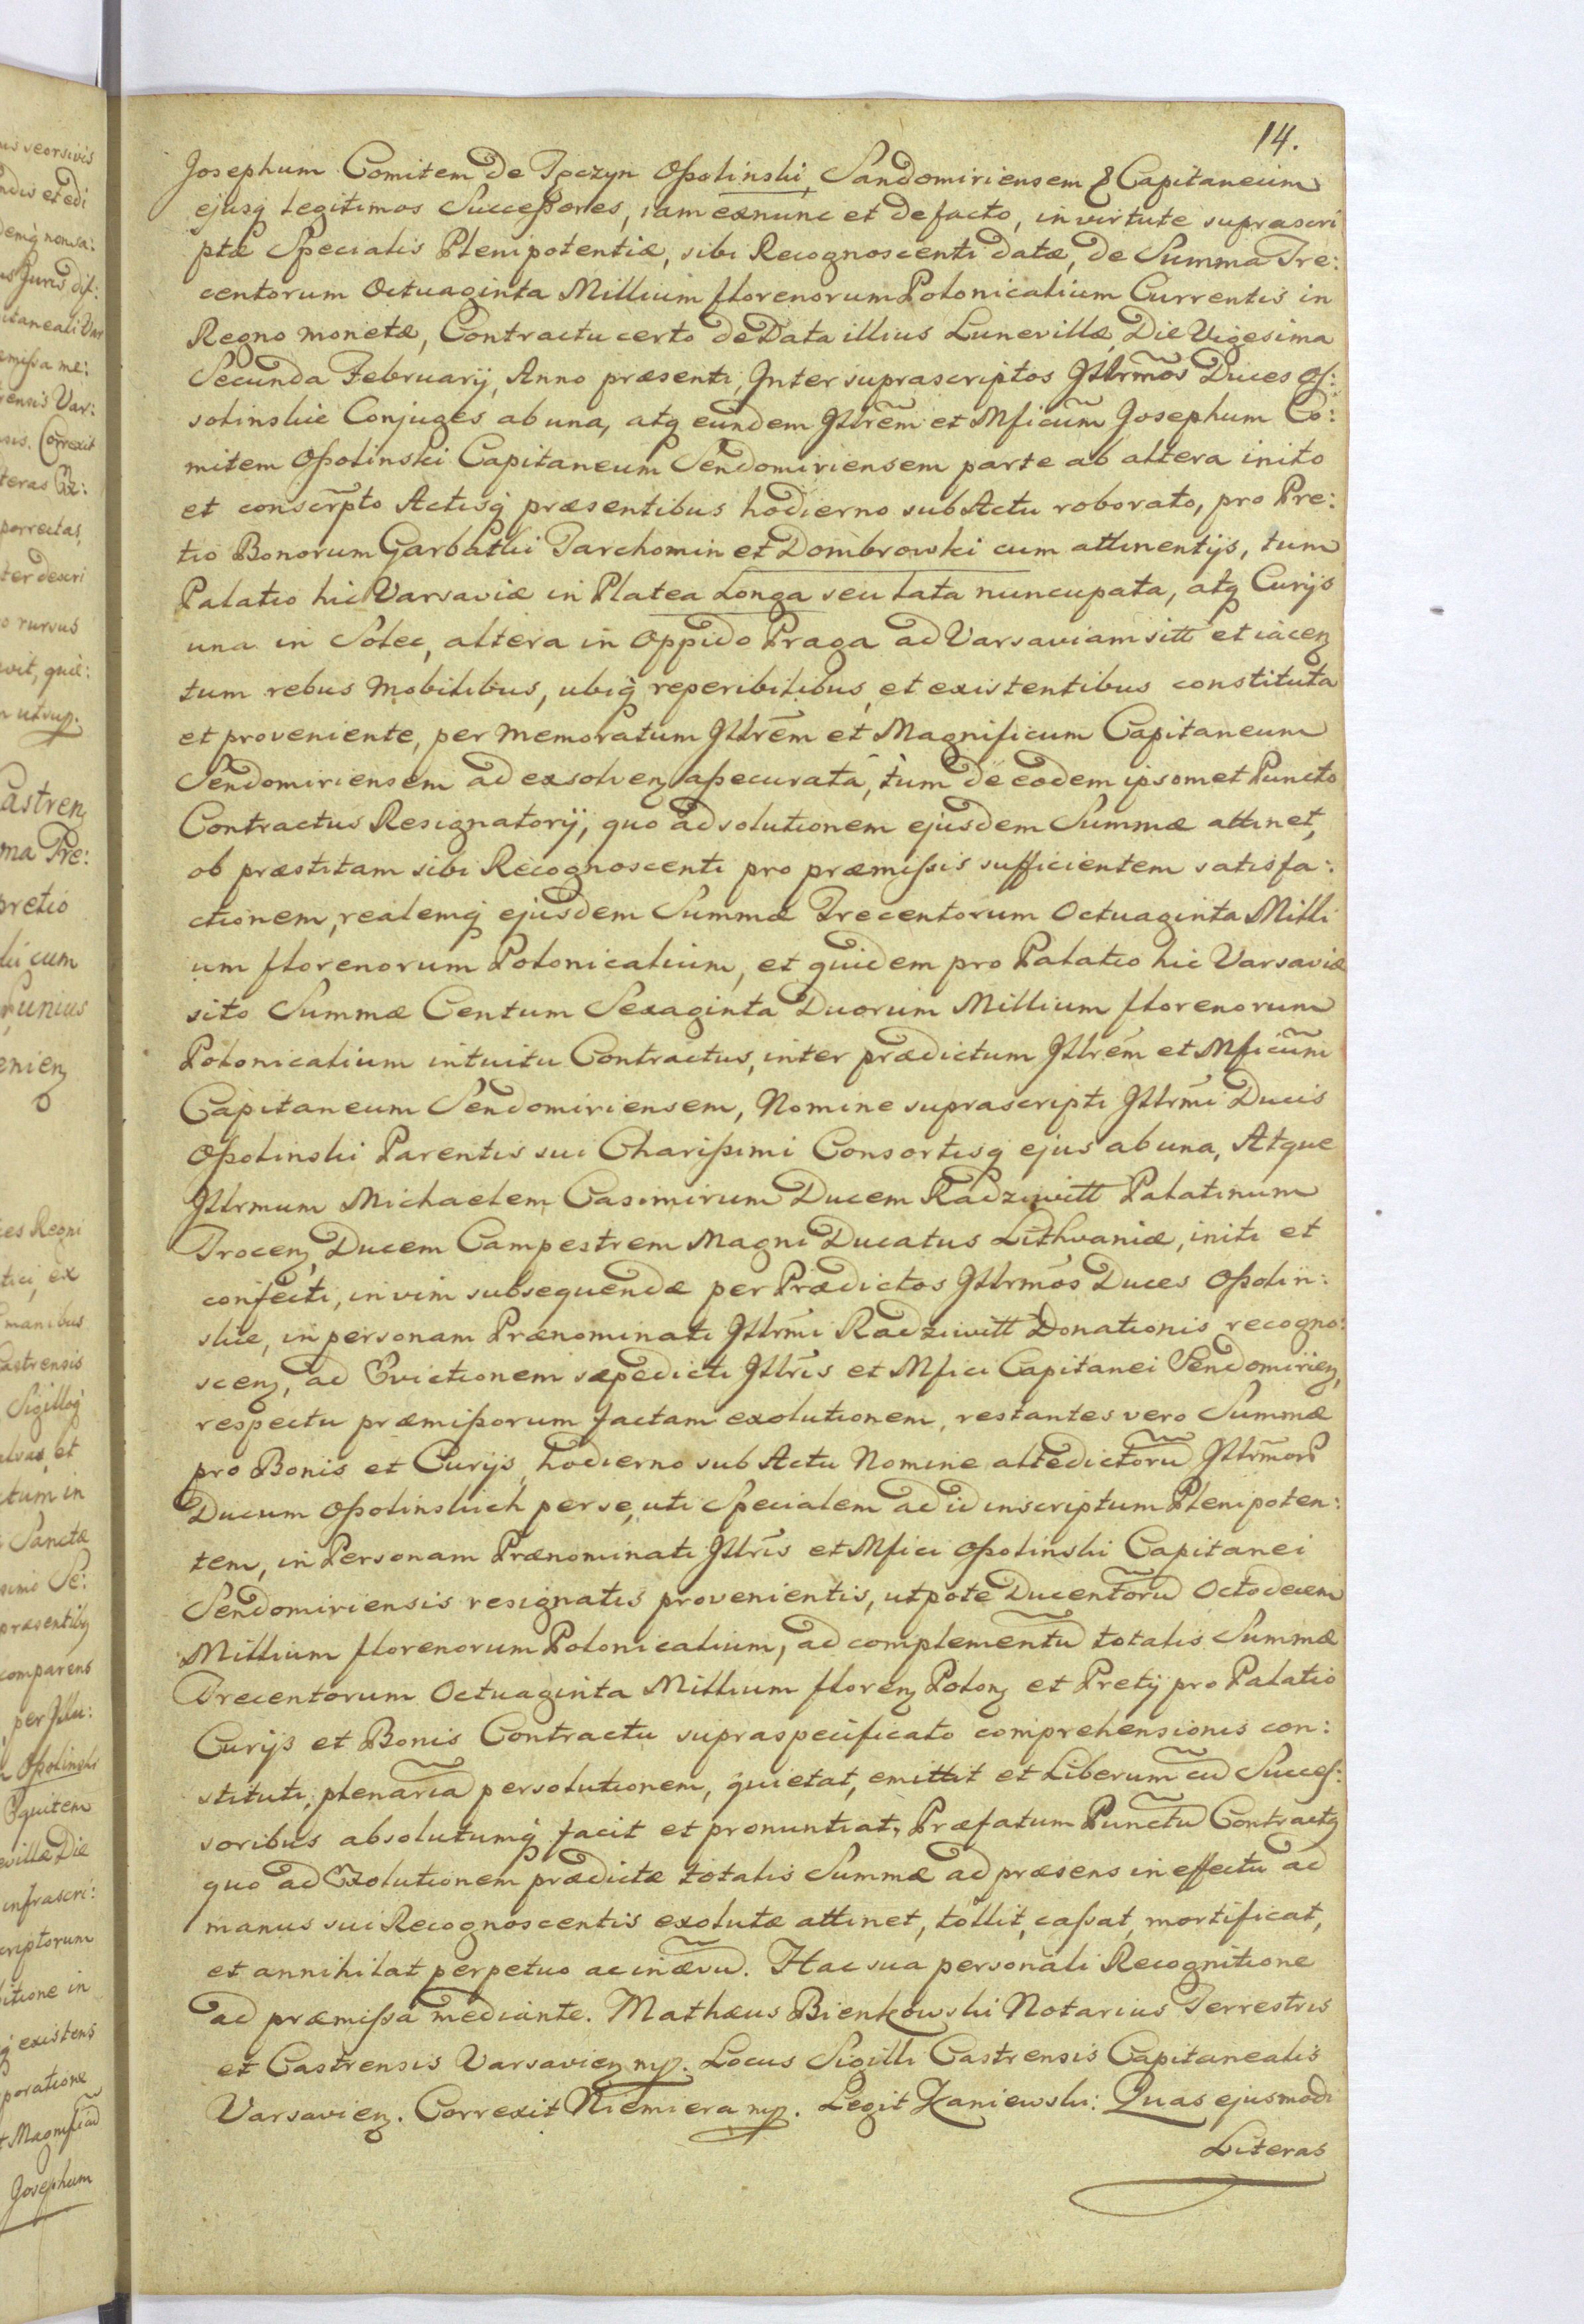 14.
Josephum Comitem de Tęczyn Oßolinski, Sandomiriensem Capitaneum
ejusq legitimos Successores, iam exnunc et defacto, in virtute suprascri
ptæ Specialis Plenipotentiæ, sibi Recognoscenti datæ, de Summa Tre:
centorum Octuaginta Millium florenorum Polonicalium Currentis in
Regno monetæ, Contractu certo de Data illius Lunevillæ, Die Vigesima
Secunda February, Anno præsenti, Inter suprascriptos Jllr̃mos Duces Os:
solinskie Conjuges ab una, atq eundem Jllrẽm et Mficũm Josephum Co:
mitem Oßolinski Capitaneum Sendomiriensem parte ab altera inito
et conscr̃pto Actisq præsentibus hodierno sub Actu roborato, pro Pre:
tio Bonorum Garbatki Tarchomin et Dombrowski cum attinentijs, tum
Palatio hic Varsaviæ in Platea Longa seu lata nuncupata, atq Curijs
una in Solec, altera in Oppido Praga ad Varsaviam sitt et iacen
tum rebus mobilibus, ubiq reperibilibus, et existentibus constituta
et proveniente, per memoratum Jllrẽm et Magnificum Capitaneum
Sendomiriensem ad exsolven aßecurata, tum de eodem ipsomet Puncto
Contractus Resignatorij, quo ad solutionem ejusdem Summæ attinet,
ob præstitam sibi Recognoscenti pro præmissis sufficientem satisfa:
ctionem, realemq ejusdem Summæ Trecentorum Octuaginta Milli
um florenorum Polonicalium, et quidem pro Palatio hic Varsaviæ
sito Summæ Centum Sexaginta Duorum Millium florenorum
Polonicalium intuitu Contractus, inter prædictum Jllrẽm et Mficũm
Capitaneum Sendomiriensem, Nomine suprascripti Jllrm̃i Ducis
Oßolinski Parentis sui Charißimi Consortisq ejus ab una, Atque
Jllrmum Michaelem Casimirum Ducem Radziwill Palatinum
Trocen, Ducem Campestrem Magni Ducatus Lithvaniæ, initi et
confecti, in vim subsequendæ per Prædictos Jllrmõs Duces Oßolin:
skie, in personam Prænominati Jllrm̃i Radziwill Donationis recogno:
scen, ad Evictionem sæpedicti Jllrĩs et Mfici Capitanei Sendomirien,
respectu præmißorum factam exolutionem, restantes vero Summæ
pro Bonis et Curijs, hodierno sub Actu Nomine altedictorũ Jllrm̃or
Ducum Oßolinskich per se, uti Specialem ad id inscriptum Plenipoten:
tem, in Personam Prænominati Jllrĩs et Mfici Oßolinski Capitanei
Sendomiriensis resignatis provenientis, utpote Ducentorũ Octodecem
Millium florenorum Polonicalium, ad complementũ totalis Summæ
Trecentorum Octuaginta Millium floren Polon et Pretij pro Palatio
Curijs et Bonis Contractu supraspecificato comprehensionis con:
stituti, plenariã persolutionem, quietat, emittit et Liberum cũ Succes:
soribus absolutumq facit et pronuntiat, Præfatum Punctũ Contractq
quo ad Exolutionem prædictæ totalis Summæ ad præsens in effectu ad
manus sui Recognoscentis exolutæ attinet, tollit, cassat, mortificat,
et annihilat perpetuo ac in ævũ. Hac sua personali Recognitione
ad præmissa mediante. Mathæus Bienkowski Notarius Terrestris
et Castrensis Varsavien mp. Locus Sigilli Castrensis Capitanealis
Varsavien. Correxit Niemiera mp. Legit Zaniewski: Quas ejusmodi
Literas